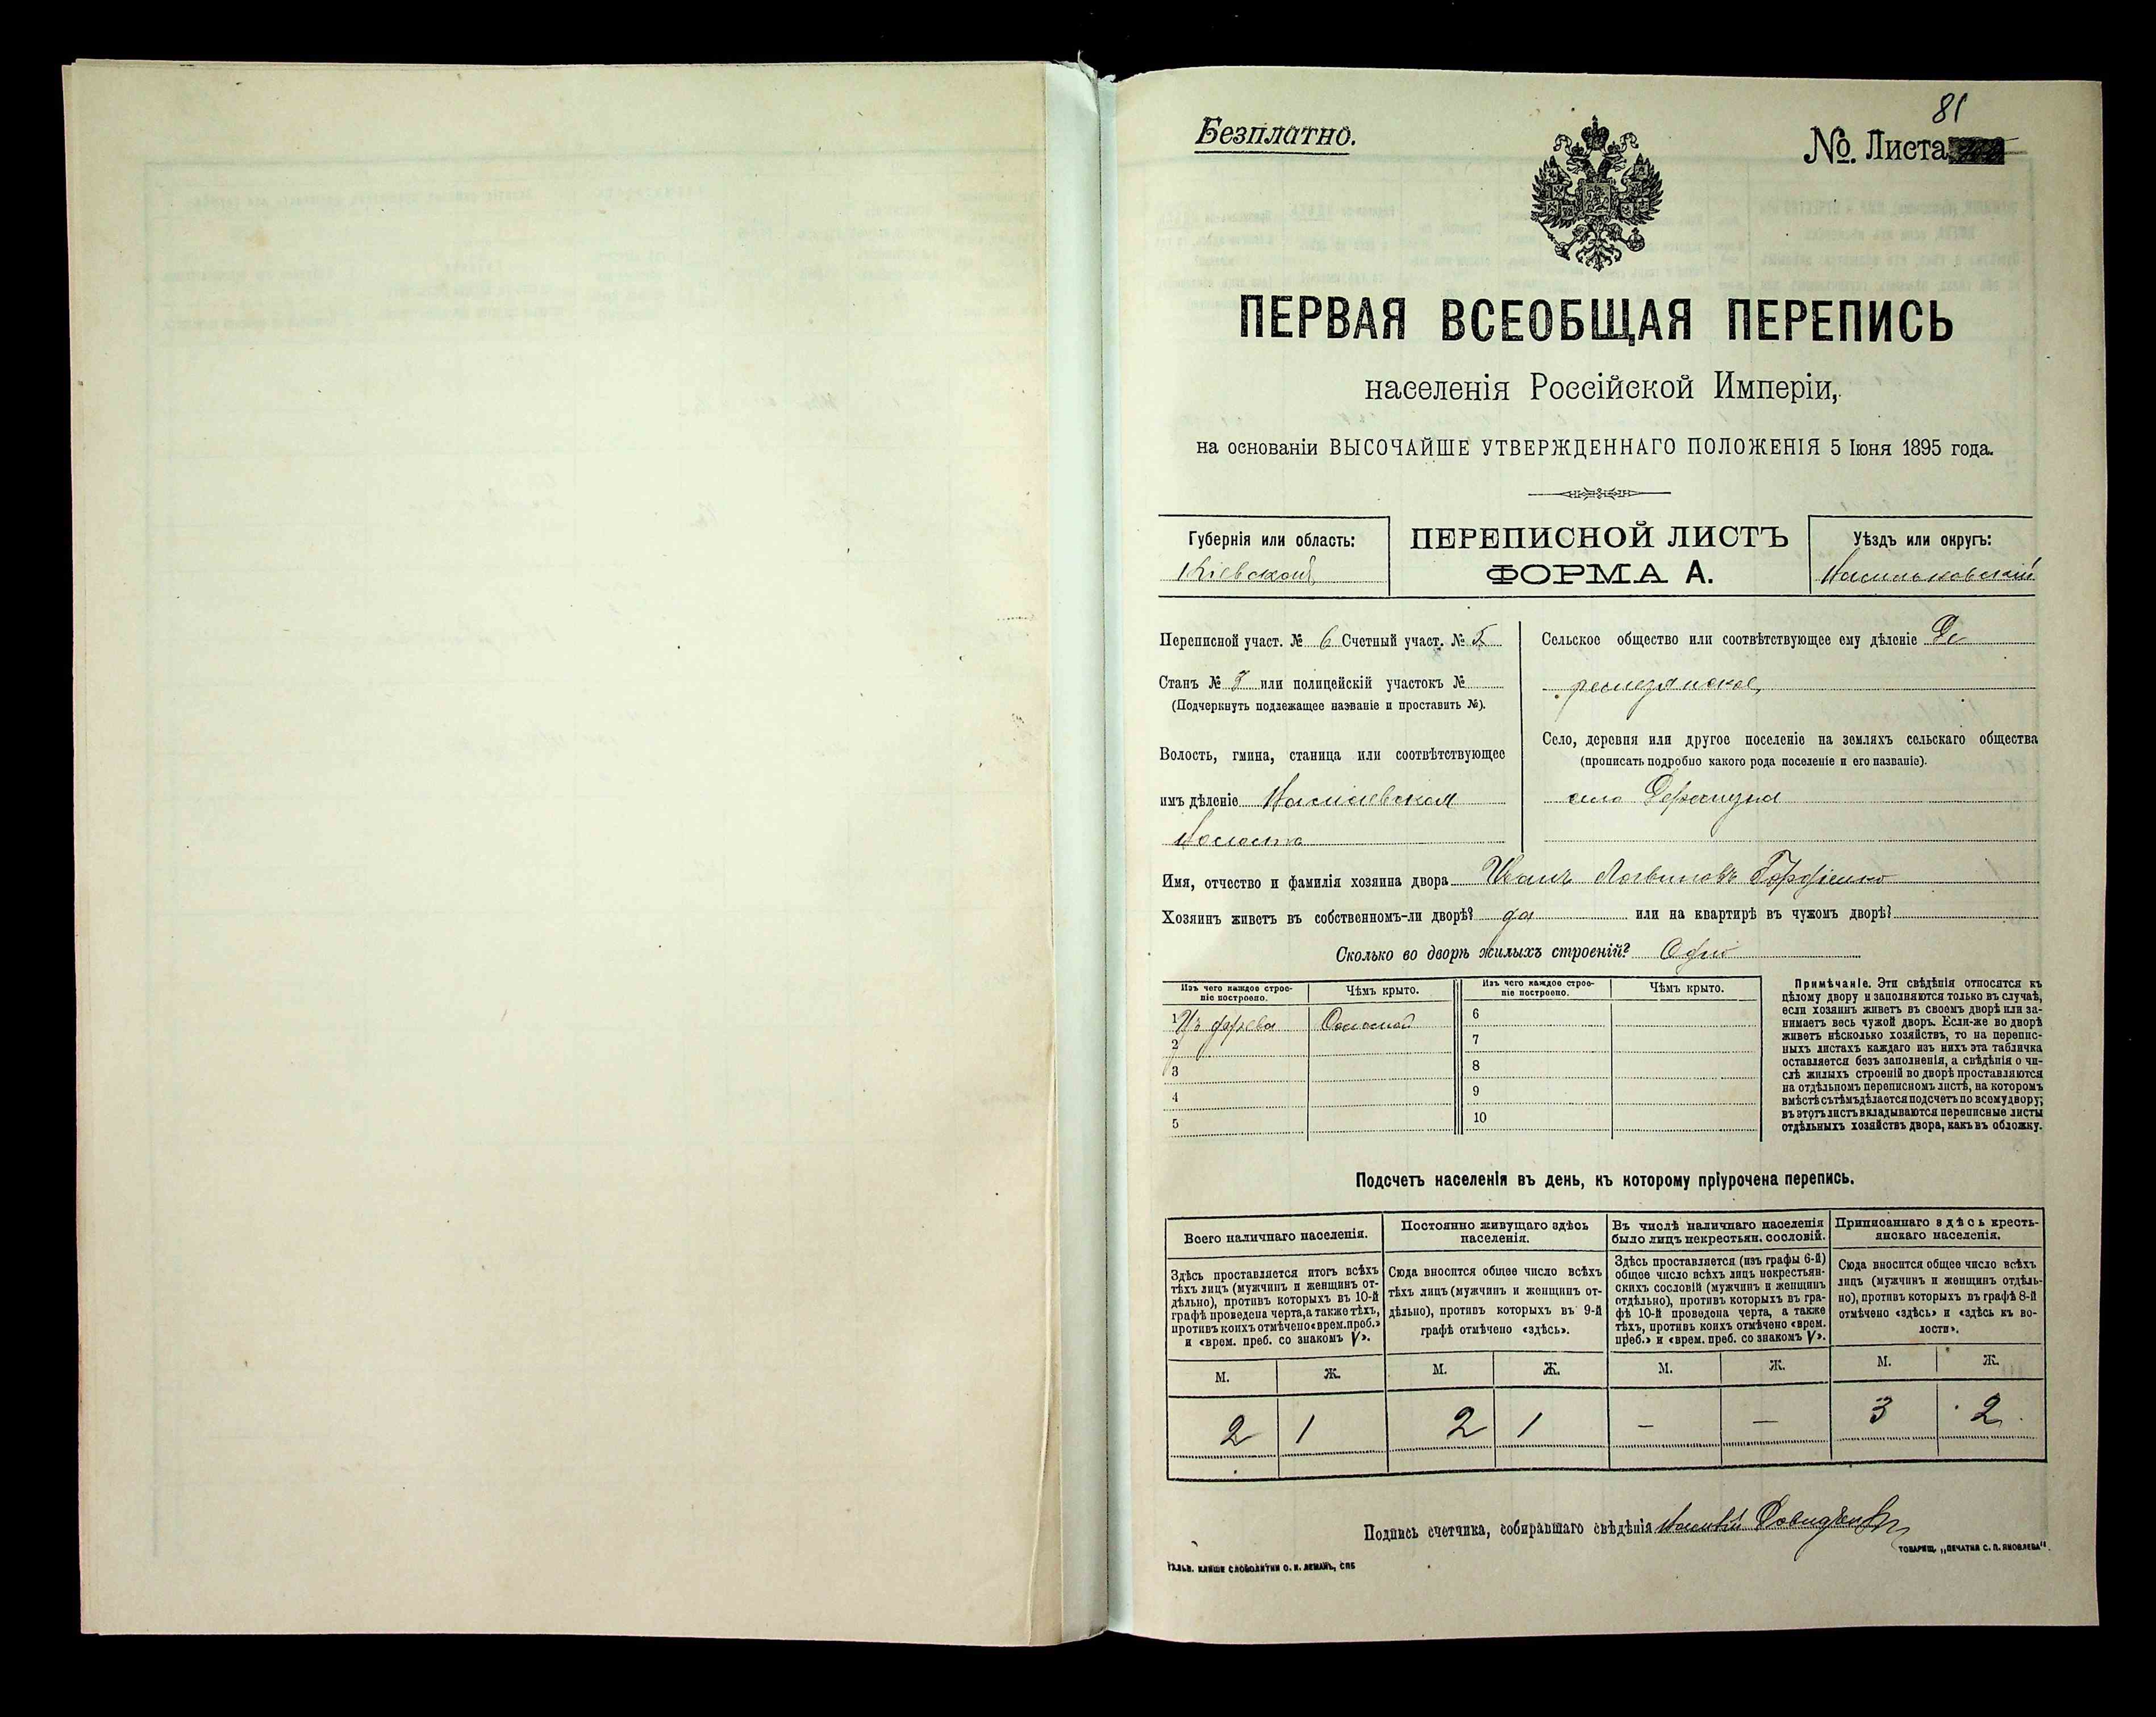 81
Безплатно.
№. Листа
ПЕРВАЯ ВСЕОБЩАЯ ПЕРЕПИСЬ
населенія Россійской Имперіи,
на основаніи ВЫСОЧАЙШЕ УТВЕРЖДЕННАГО ПОЛОЖЕНІЯ 5 Іюня 1895 года.
Губернія или область:
Кіевской
ПЕРЕПИСНОЙ ЛИСТЪ
ФОРМА А.
Уѣздъ или округъ:
Васильковскій
Переписной участ. № 6 Счетный участ. № 5
Станъ № или полицейскій участокъ №
(Подчеркнуть подлежащее названіе и проставить №).
Волость, гмина, станица или соотвѣтствующее
имъ дѣленіе
Волость
Сельское общество или соотвѣтствующее ему дѣленіе Де
резнянское
Село, деревня или другое поселеніе на земляхъ сельскаго общества
(прописать подробно какого рода поселеніе и его названіе).
село
Имя, отчество и фамилія хозяина двора Иванъ Логвиновъ Гордіенко
Хозяинъ живетъ въ собственномъ-ли дворѣ? да или на квартирѣ въ чужомъ дворѣ?
Сколько во дворѣ жилыхъ строеній? Одно
Изъ чего каждое строе-
ніе построено.
Чѣмъ крыто.
Изъ чего каждое строе-
ніе построено.
Чѣмъ крыто.
1 Изъ дерева Соломой
2
3
4
5
6
7
8
9
10
Примѣчаніе. Эти свѣдѣнія относятся къ
цѣлому двору и заполняются только въ случаѣ,
если хозяинъ живетъ въ своемъ дворѣ или за-
нимаетъ весь чужой дворъ. Если-же во дворѣ
живетъ нѣсколько хозяйствъ, то на перепис-
ныхъ листахъ каждаго изъ нихъ эта табличка
оставляется безъ заполненія, а свѣдѣнія о чи-
слѣ жилыхъ строеній во дворѣ проставляются
на отдѣльномъ переписномъ листѣ, на которомъ
вмѣстѣ съ тѣмъ дѣлается подсчетъ по всему двору;
въ этотъ листъ вкладываются переписные листы
отдѣльныхъ хозяйствъ двора, какъ въ обложку.
Подсчетъ населенія въ день, къ которому пріурочена перепись.
Всего наличнаго населенія.
Здѣсь проставляется итогъ всѣхъ
тѣхъ лицъ (мужчинъ и женщинъ от-
дѣльно), противъ которыхъ въ 10-й
графѣ проведена черта, а также тѣхъ,
противъ коихъ отмѣчено «врем. преб.»
и «врем. преб. со знакомъ V».
М. Ж.
2 1
Постоянно живущаго здѣсь
населенія.
Сюда вносится общее число всѣхъ
тѣхъ лицъ (мужчинъ и женщинъ от-
дѣльно), противъ которыхъ въ 9-й
графѣ отмѣчено «здѣсь».
М. Ж.
2 1
Въ числѣ наличнаго населенія
было лицъ некрестьян. сословій.
Здѣсь проставляется (изъ графы 6-й)
общее число всѣхъ лицъ некрестьян-
скихъ сословій (мужчинъ и женщинъ
отдѣльно), противъ которыхъ въ гра-
фѣ 10-й проведена черта, а также
тѣхъ, противъ коихъ отмѣчено «врем.
преб.» и «врем. преб. со знакомъ V».
М. Ж.
— —
Приписаннаго здѣсь кресть-
янскаго населенія.
Сюда вносится общее число всѣхъ
лицъ (мужчинъ и женщинъ отдѣль-
но), противъ которыхъ въ графѣ 8-й
отмѣчено «здѣсь» и «здѣсь къ во-
лости».
М. Ж.
3 2
Подпись счетчика, собиравшаго свѣдѣнія
ГАЛЬВ. КЛИШЕ СЛОВОЛИТНИ О. И. ЛЕМАНЪ, СПБ
ТОВАРИЩ. „ПЕЧАТНЯ С. П. ЯКОВЛЕВА".